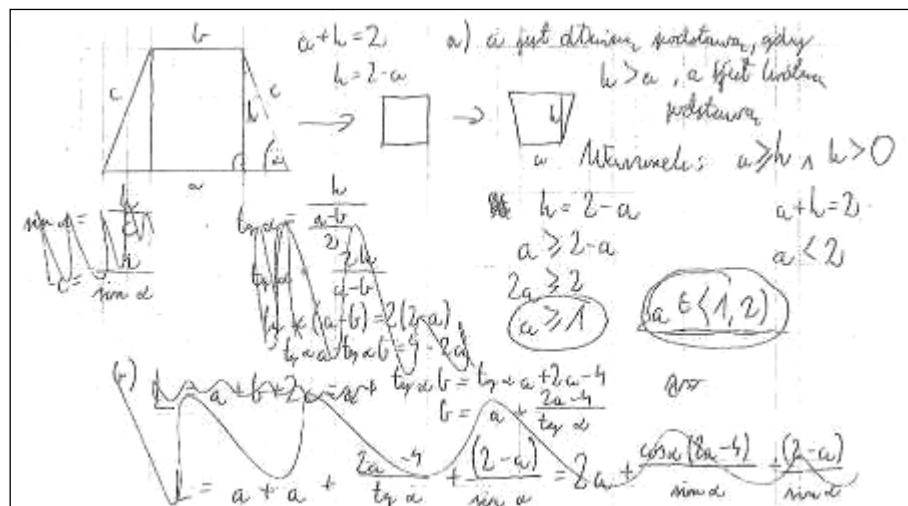 b
a+h=2
h=2-a
a) a jest dłuższą podstawą, gdy
h>a, a jest krótszą
podstawą
c
h
c
α
a
h
a
Warunek: a≥h ∧ h>0
h=2-a
a+h=2
a≥2-a
a<2
2a≥2
a≥1
a∈⟨1,2)
sin α =
sin α
tg α = h / ((a-b)/2)
2h / (a-b)
tg α (a-b) = 2(2-a)
tg α a - tg α b = 4-2a
tg α b = tg α a + 2a-4
b = a + (2a-4)/tg α
b)
L = a+b+2c = a+
L = a + a + (2a-4)/tg α + (2-a)/sin α = 2a + cos α(2a-4)/sin α + (2-a)/sin α